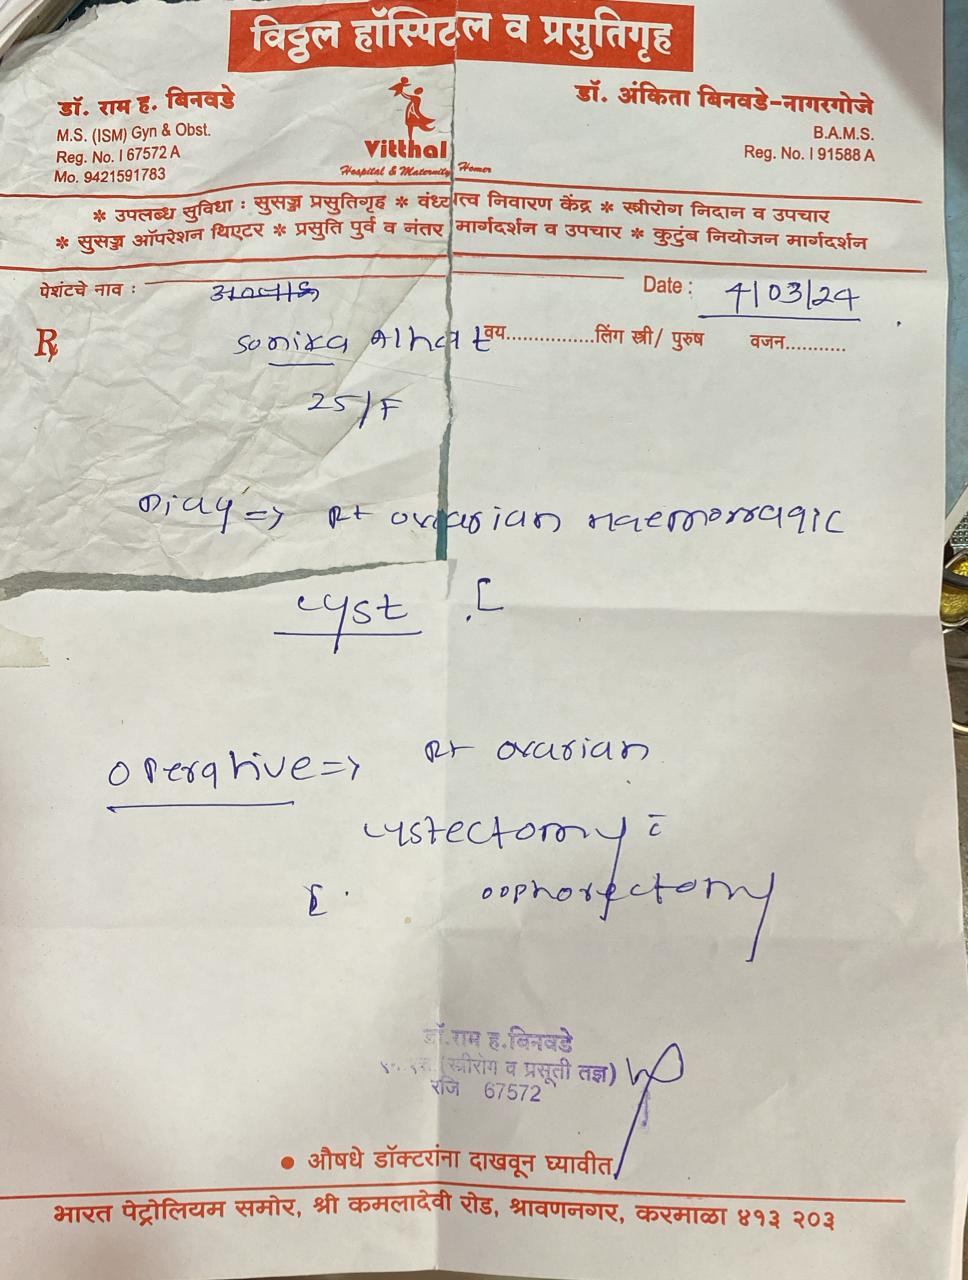 विठ्ठल हॉस्पिटल व प्रसुतिगृह
डॉ. राम ह. बिनवडे
M.S. (ISM) Gyn & Obst.
Reg. No. I 67572 A
Mo. 9421591783
Vitthal
Hospital & Maternity Homer
डॉ. अंकिता बिनवडे-नागरगोजे
B.A.M.S.
Reg. No. I 91588 A
* उपलब्ध सुविधा : सुसज्ज प्रसुतिगृह * वंध्यत्व निवारण केंद्र * स्त्रीरोग निदान व उपचार
* सुसज्ज ऑपरेशन थिएटर * प्रसुति पुर्व व नंतर मार्गदर्शन व उपचार * कुटुंब नियोजन मार्गदर्शन
पेशंटचे नाव :
Date : 4/03/24
Rx
वय...............लिंग स्त्री/ पुरुष वजन...........
Alhat
25/F
Diag => Rt ovarian haemorragic
cyst
operative => Rt ovarian
cystectomy c̄
oophorectomy
डॉ.राम ह.बिनवडे
(स्त्रीरोग व प्रसूती तज्ञ)
रजि 67572
• औषधे डॉक्टरांना दाखवून घ्यावीत
भारत पेट्रोलियम समोर, श्री कमलादेवी रोड, श्रावणनगर, करमाळा ४१३ २०३